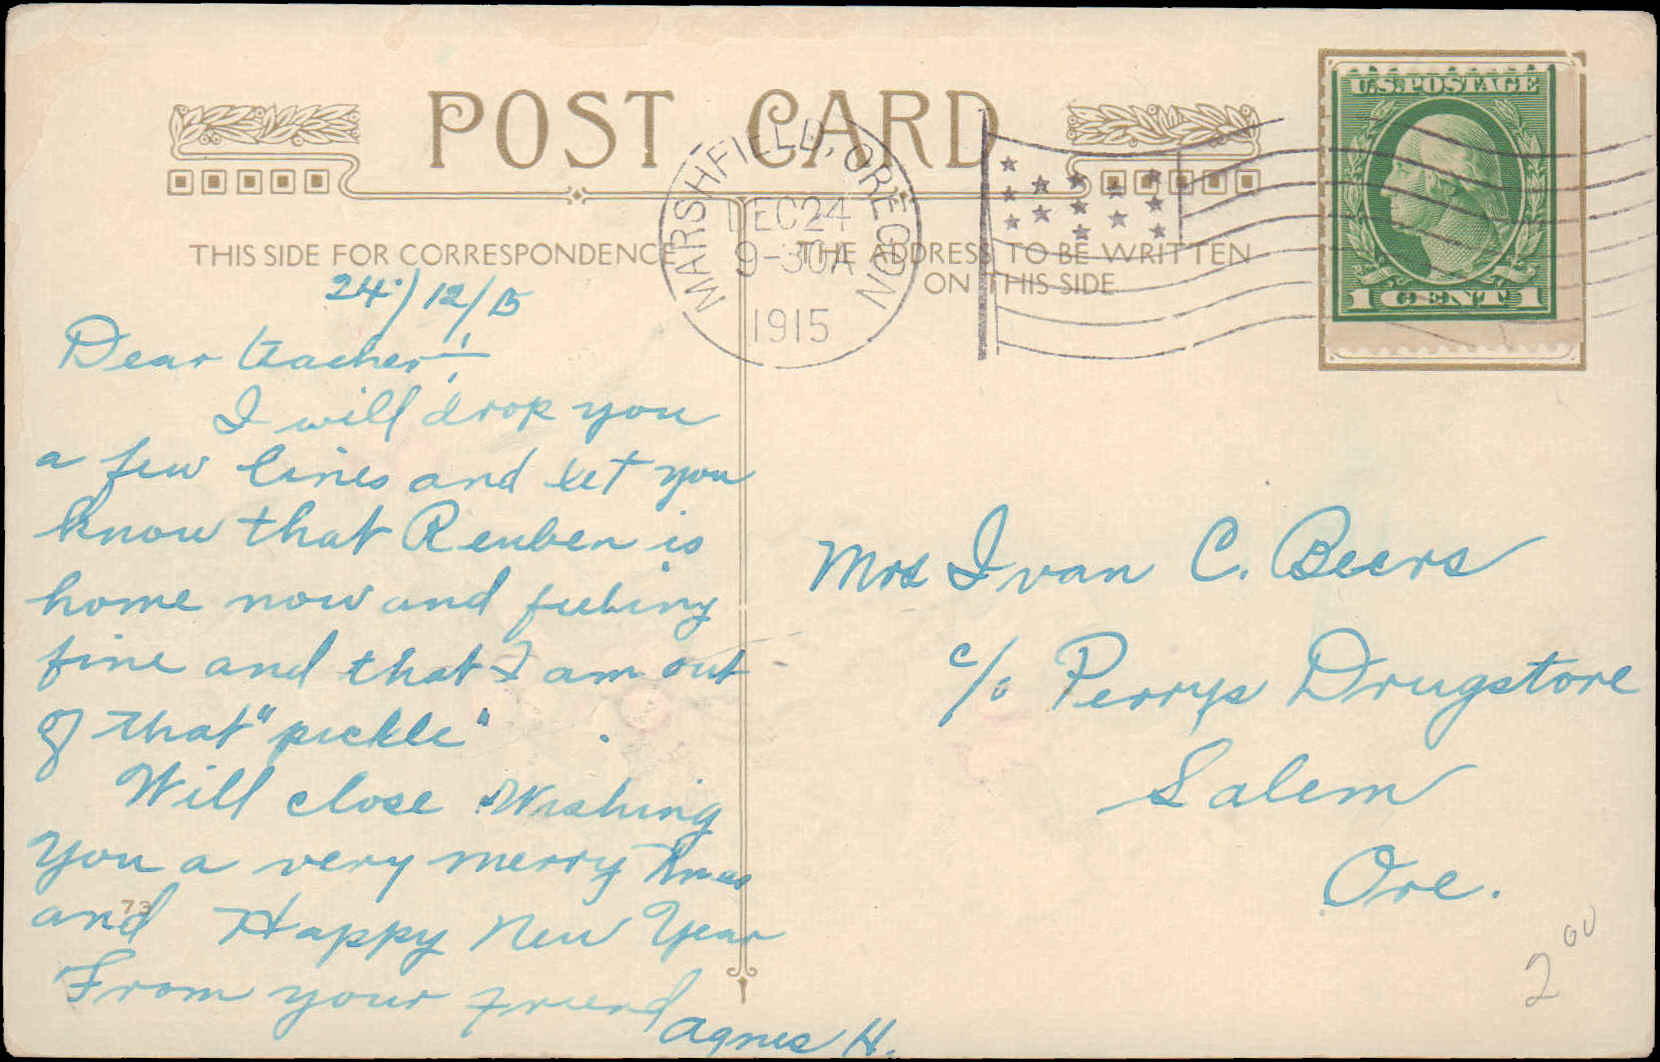 POST CARD
U.S. POSTAGE
1 CENT 1
MARSHFIELD, OREGON
DEC 24
9-30A
1915
THIS SIDE FOR CORRESPONDENCE
THE ADDRESS TO BE WRITTEN
ON THIS SIDE
24/12/15
Dear teacher:-
I will drop you
a few lines and let you
know that Reuben is
home now and feeling
fine and that I am out
of that "pickle"
Will close Wishing
you a very merry Xmas
and Happy New Year
From your friend
Agnes H.
73
Mrs Ivan C. Beers
c/o Perrys Drugstore
Salem
Ore.
2 00